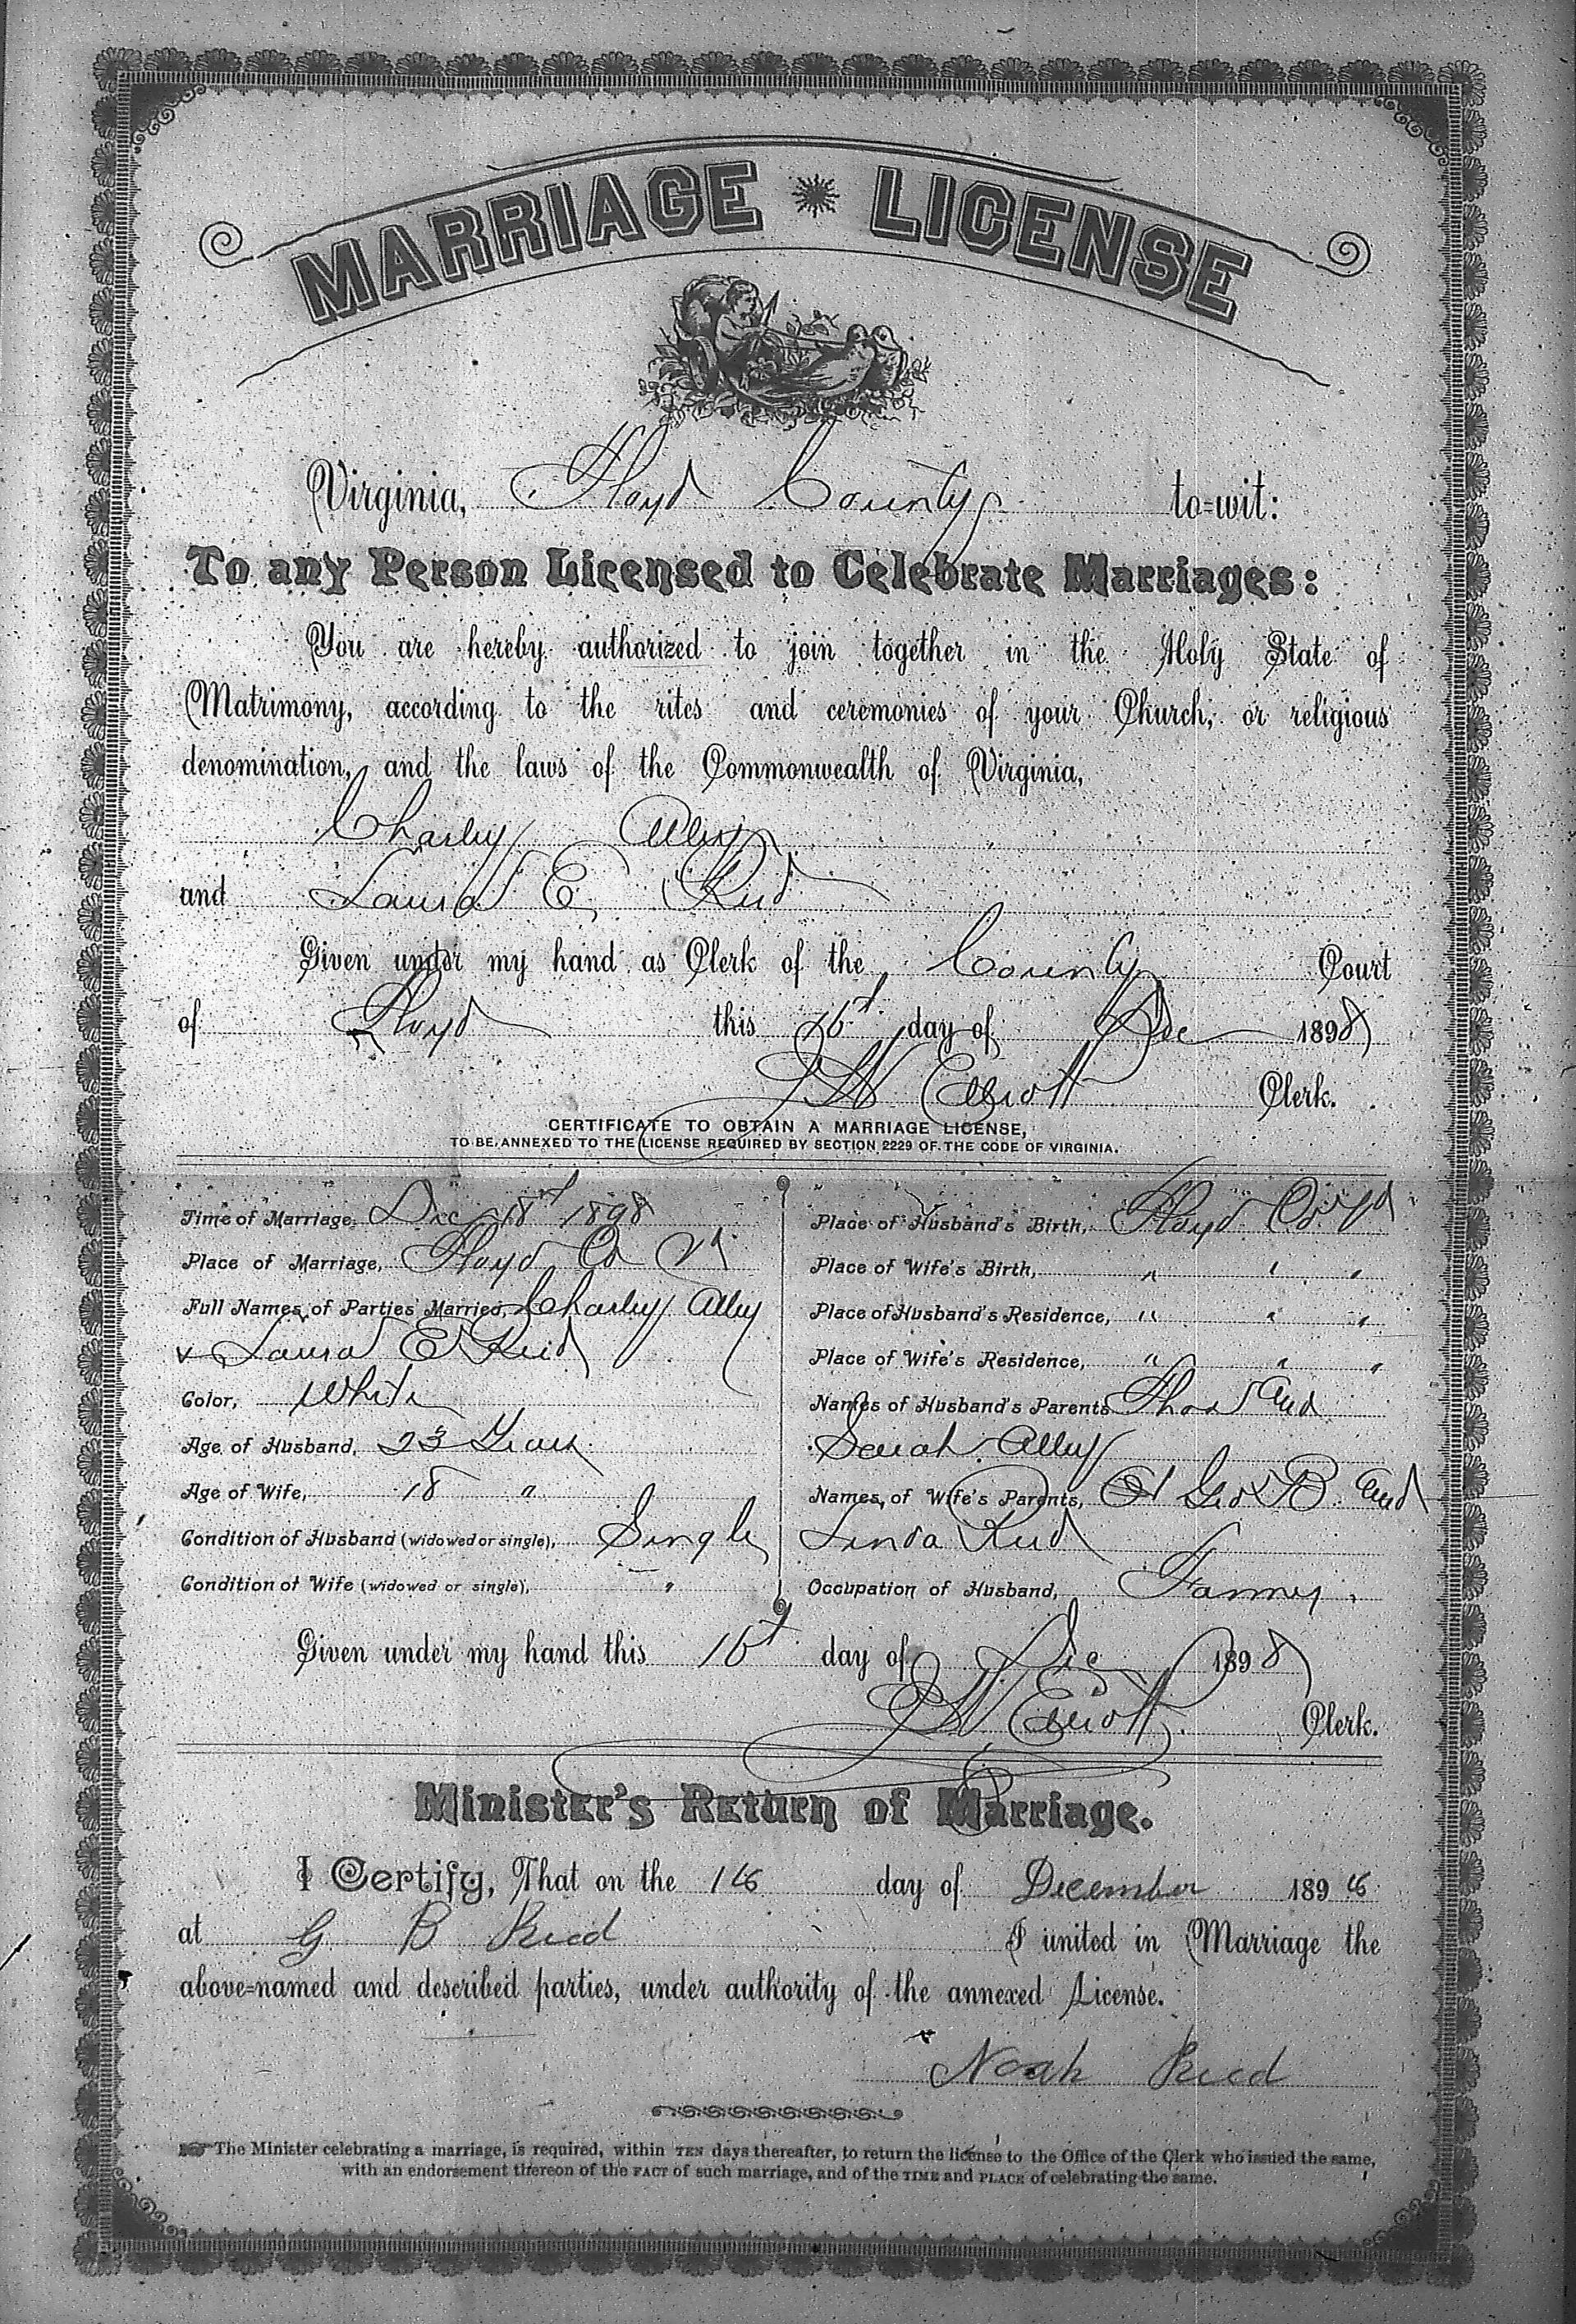 MARRIAGE LICENSE
Virginia, Floyd County to=wit:
To any Person Licensed to Celebrate Marriages:
You are hereby authorized to join together in the Holy State of
Matrimony, according to the rites and ceremonies of your Church, or religious
denomination, and the laws of the Commonwealth of Virginia,
Charley Alley
and Laura E. Reid
Given under my hand as Clerk of the County Court
of Floyd this day of Dec 1898
Elliott Clerk.
CERTIFICATE TO OBTAIN A MARRIAGE LICENSE,
TO BE ANNEXED TO THE LICENSE REQUIRED BY SECTION 2229 OF THE CODE OF VIRGINIA.
Time of Marriage, Dec 18 1898
Place of Marriage, Floyd Co Va
Full Names of Parties Married, Charley Alley
Laura E Reid
Color, White
Age of Husband, 23 Years
Age of Wife, 18 "
Condition of Husband (widowed or single), Single
Condition of Wife (widowed or single), "
Place of Husband's Birth, Floyd Co Va
Place of Wife's Birth, " " "
Place of Husband's Residence, " " "
Place of Wife's Residence, " " "
Names of Husband's Parents Thos and
Sarah Alley
Names of Wife's Parents, Geo B and
Reid
Occupation of Husband, Farmer
Given under my hand this day of Dec 1898
Elliott Clerk.
Minister's Return of Marriage.
I Certify, That on the day of December 189
at G B Reed I united in Marriage the
above=named and described parties, under authority of the annexed License.
Noah Reed
The Minister celebrating a marriage, is required, within TEN days thereafter, to return the license to the Office of the Clerk who issued the same,
with an endorsement thereon of the FACT of such marriage, and of the TIME and PLACE of celebrating the same.